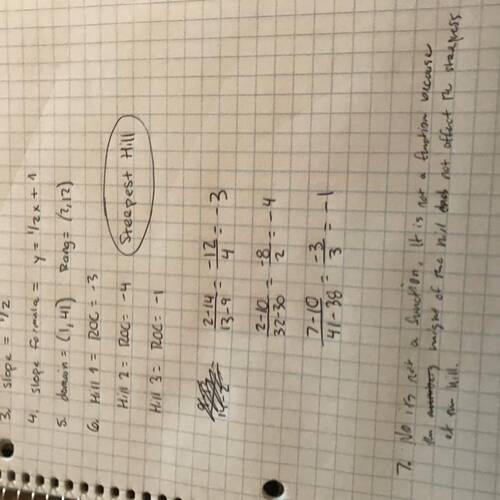 3. slope = 1/2
4. slope formula = y = 1/2x + 1
5. domain = (1, 41) Rang = (2, 12)
6. Hill 1 = ROC = -3
Hill 2 = ROC = -4 Steepest Hill
Hill 3 = ROC = -1
14-2
2-14/13-9 = -12/4 = -3
2-10/32-30 = -8/2 = -4
7-10/41-38 = -3/3 = -1
7. No its not a function. It is not a function because
the height of the hill not affect the steepness
of the hill.